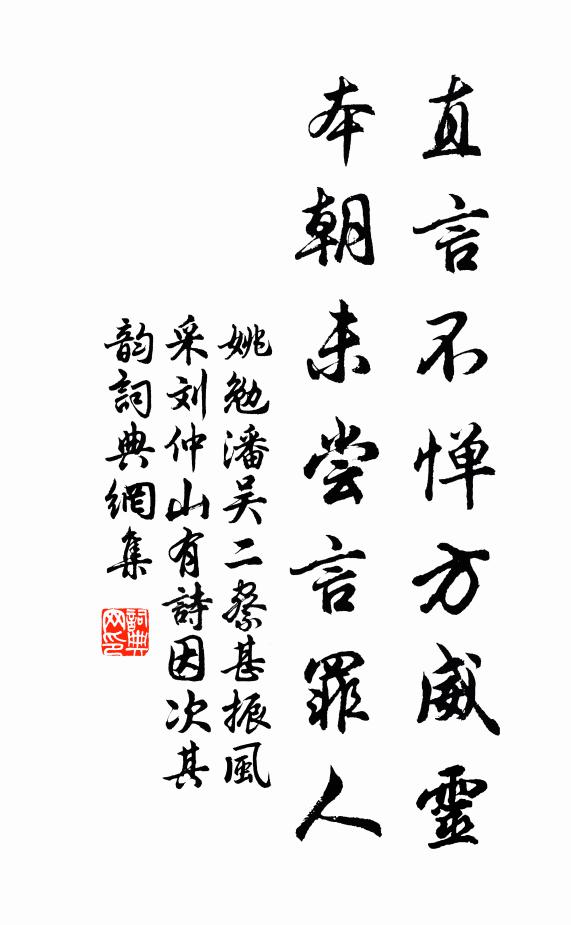 直言不惮方威靈
本朝未尝言罪人
姚勉潘吴二察甚振風
采刘仲山有詩因次其
韵詞典網集
詞典
网印